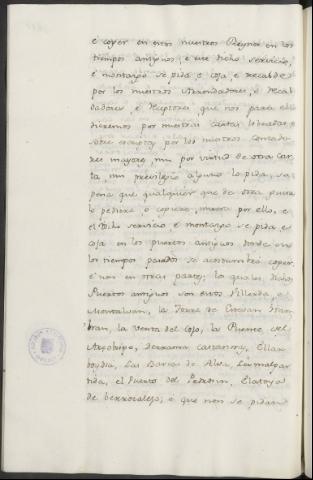 e coger en estos nuestros Reynos en los
tiempos antiguos, e este dicho servicio,
e montazgo se pida e coja, e recalde
por los nuestros Arrendadores, e Recal
dadores, e Receptores, que nos para ello
dieremos por nuestras cartas libradas, e
sobre escriptas por los nuestros Contado
res mayores, nin por virtud de otra Car
ta, nin previlegio alguno lo pida, so
pena que qualquier que de otra guisa
lo pediere, o cogiere, muera por ello, e
el dicho servicio e montazgo se pida, e
coja en los puertos antiguos donde en
los tiempos pasados se acostumbró coger,
e non en otras partes; los quales dichos
Puertos antiguos son estos Villarta, e
Montalvan, la Torre de Estevan
bran, la venta del Cojo, la Puente del
Arzobispo, Ramacastañas,
las Barcas de Alva, Malpar
tida, el Puerto del
de berrocalejo; e que non se pidan